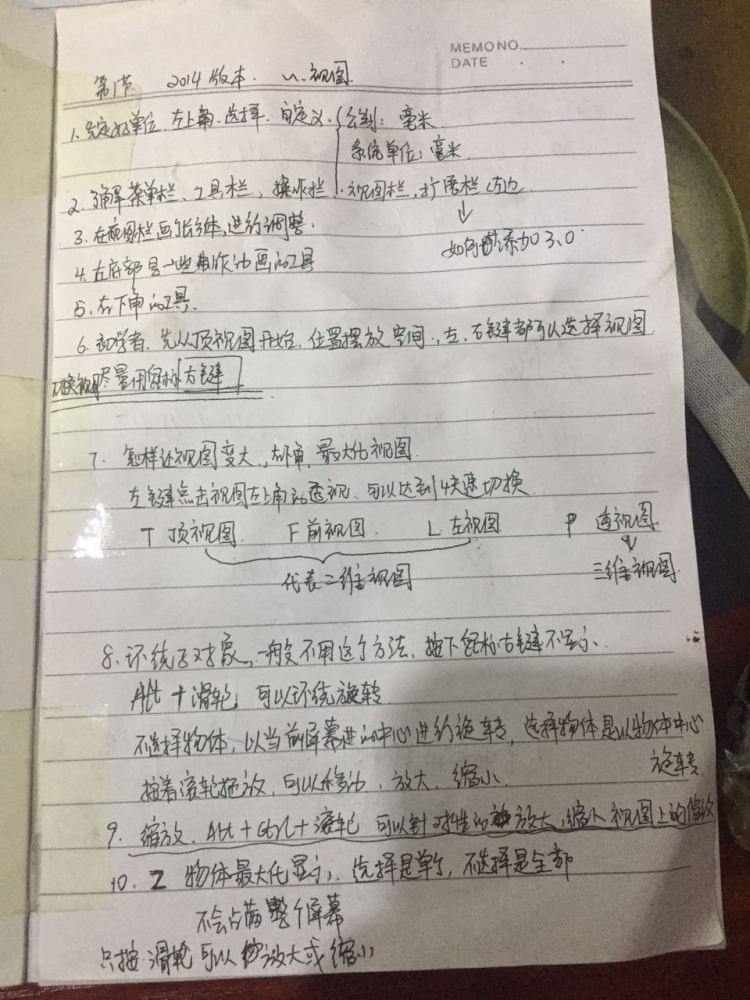 MEMO NO.
DATE . .
第1节 2014版本. 视图
1. 先定好单位. 左上角. 选择. 自定义. { 公制: 毫米
系统单位: 毫米
2. 了解菜单栏、工具栏, 操作栏. 视图栏, 扩展栏
如何添加3.0
3. 在视图栏画长方体, 进行调整.
4. 左底部是一些制作动画的工具
5. 右下角的工具.
6. 初学者. 先从顶视图开始. 位置摆放空间. 左、右键都可以选择视图
切换视图尽量用鼠标右键
7. 怎样让视图变大、右下角. 最大化视图.
左键点击视图左上角的透视. 可以达到快速切换.
T 顶视图. F 前视图. L 左视图. P 透视图
代表二维视图 三维视图
8. 环绕子对象, 一般不用这个方法. 按下鼠标右键不显示.
Alt + 滑轮 可以环绕旋转
不选择物体, 以当前屏幕的中心进行旋转, 选择物体是以物体中心
旋转
按着滚轮拖放, 可以移动, 放大. 缩小.
9. 缩放. Alt + Ctrl + 滚轮 可以针对性的放大, 缩小 视图上的
10. Z 物体最大化显示. 选择是单个, 不选择是全部
不会占满整个屏幕
只按滑轮可以放大或缩小